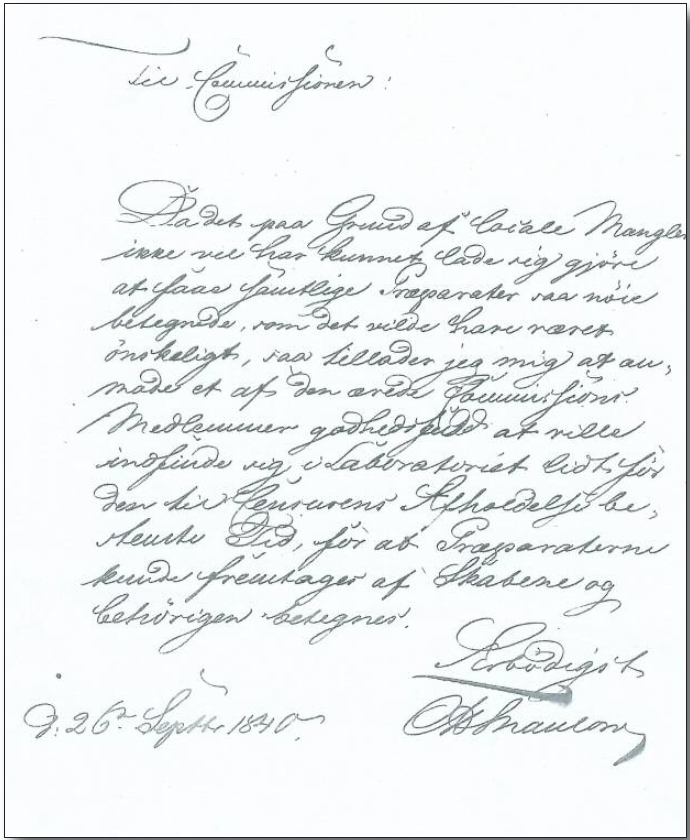 Til Commissionen:
Da det paa Grund af locale Mangler
ikke vel har kunnet lade sig gjöre
at faae samtlige Præparater saa nöie
betegnede, som det vilde have været
önskeligt, saa tillader jeg mig at an-
mode et af den ærede Commissions
Medlemmer godhedsfuld at ville
indfinde sig i Laboratoriet lidt för
den til Censurens Afholdelse be-
stemte Tid, för at Præparaterne
kunde fremtages af Skabene og
behörigen betegnes.
Ærbödigst
d: 26 Septbr 1840.